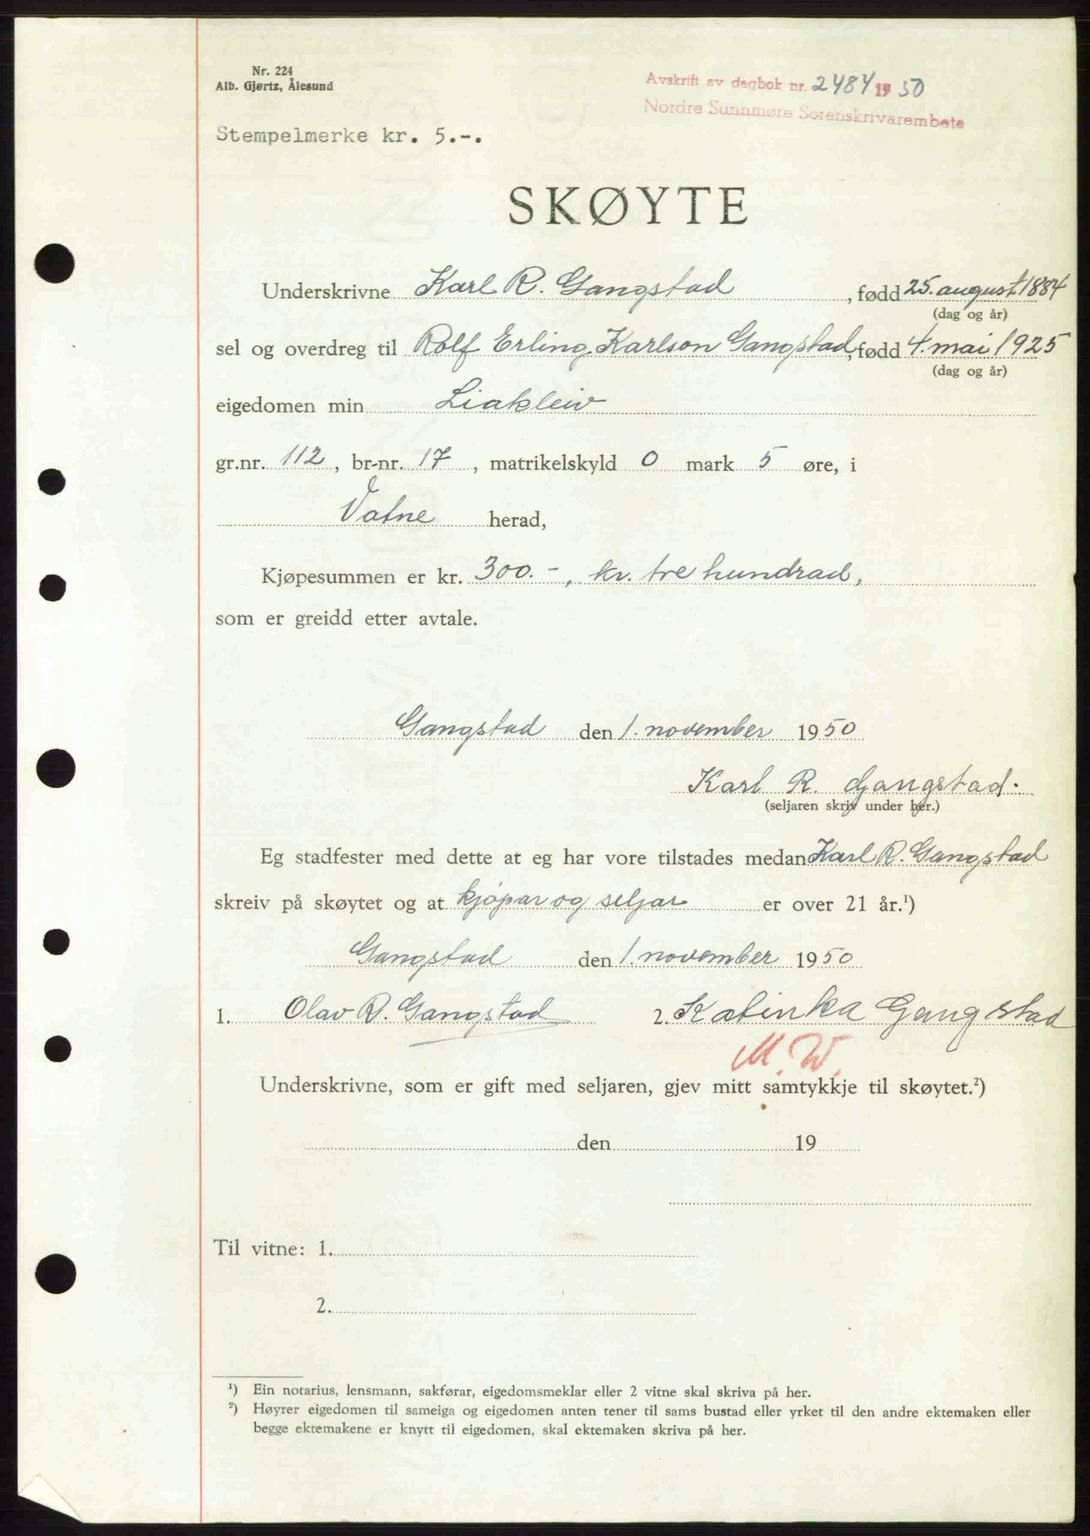 Nr. 224
Alb. Gjørtz, Ålesund
Avskrift av dagbok nr. 2484 1950
Nordre Sunnmøre Sorenskrivarembete
Stempelmerke kr. 5.-.
SKØYTE
Underskrivne Karl R. Gangstad, fødd 25. august 1884
(dag og år)
sel og overdreg til Rolf Erling Karlson Gangstad, fødd 4. mai 1925
(dag og år)
eigedomen min Liakleiv
gr.nr. 112, br-nr. 17, matrikelskyld 0 mark 5 øre, i
Vatne herad,
Kjøpesummen er kr. 300.-, kr. tre hundrad,
som er greidd etter avtale.
Gangstad den 1. november 1950
Karl R. Gangstad.
(seljaren skriv under her.)
Eg stadfester med dette at eg har vore tilstades medan Karl R. Gangstad
skreiv på skøytet og at kjøpar og seljar er over 21 år.¹)
Gangstad den 1. november 1950
1. Olav R. Gangstad 2. Katinka Gangstad
M. W.
Underskrivne, som er gift med seljaren, gjev mitt samtykkje til skøytet.²)
den 19
Til vitne: 1.
2.
¹) Ein notarius, lensmann, sakførar, eigedomsmeklar eller 2 vitne skal skriva på her.
²) Høyrer eigedomen til sameiga og eigedomen anten tener til sams bustad eller yrket til den andre ektemaken eller
begge ektemakene er knytt til eigedomen, skal ektemaken skriva på her.